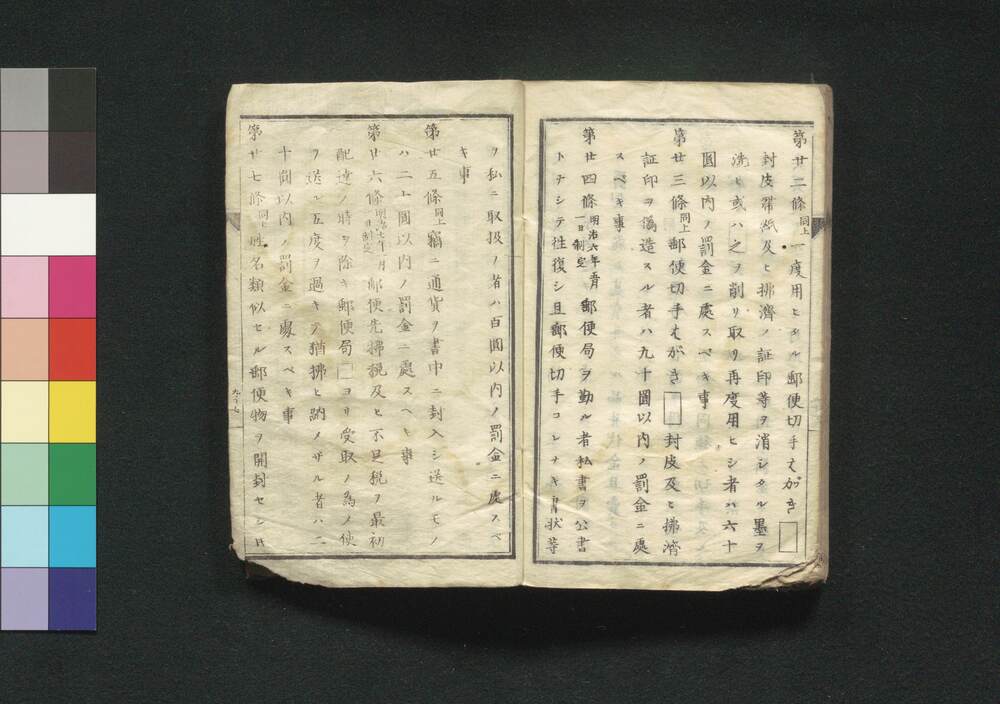 第廿二條同上一度用ヒタル郵便切手はがき
封皮帶紙及ヒ拂濟ノ証印等ヲ消シタル墨ヲ
洗ヒ或ハ之ヲ削リ取リ再度用ヒシ者ハ六十
圓以内ノ罰金ニ處スベキ事
第廿三條同上郵便切手はがき封皮及ヒ拂濟
証印ヲ偽造スル者ハ九十圓以内ノ罰金ニ處
スベキ事
第廿四條明治六年五月一日制定郵便局ヲ勤ル者私書ヲ公書
トナシテ往復シ且郵便切手コレナキ書状等
ヲ私ニ取扱フ者ハ百圓以内ノ罰金ニ處スベ
キ事
第廿五條同上竊ニ通貨ヲ書中ニ封入シ送ルモノ
ハ二十圓以内ノ罰金ニ處スヘキ事
第廿六條明治七年一月一日制定郵便先拂税及ヒ不足税ヲ最初
配達ノ時ヲ除キ郵便局ヨリ受取ノ為メ使
ヲ送ル五度ヲ過キテ猶拂ヒ納メザル者ハ二
十圓以内ノ罰金ニ處スベキ事
第廿七條同上姓名類似セル郵便物ヲ開封セシ